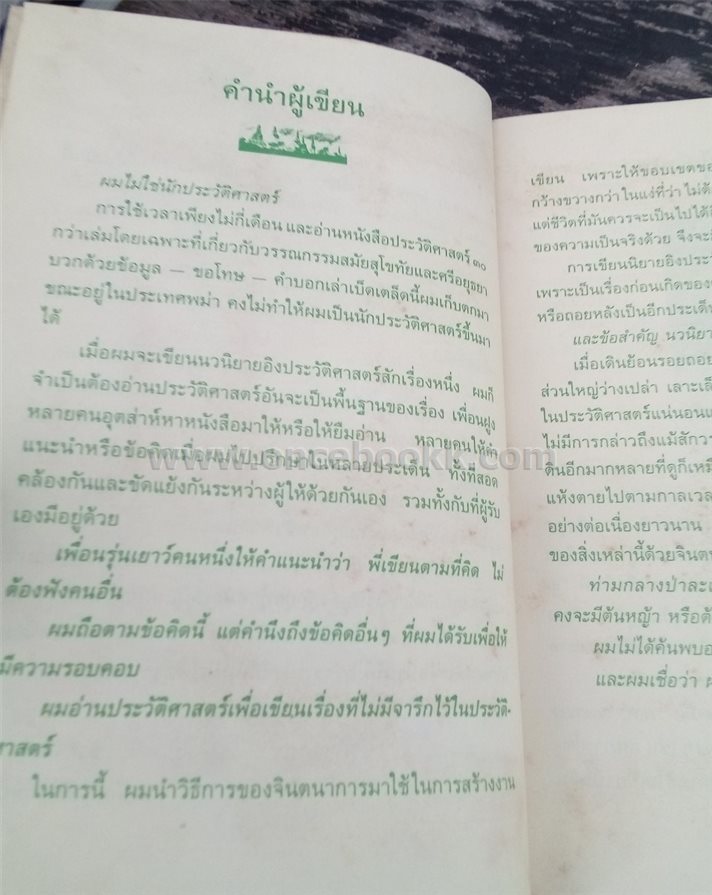 คำนำผู้เขียน
ผมไม่ใช่นักประวัติศาสตร์
การใช้เวลาเพียงไม่กี่เดือน และอ่านหนังสือประวัติศาสตร์ ๓๐
กว่าเล่มโดยเฉพาะที่เกี่ยวกับวรรณกรรมสมัยสุโขทัยและศรีอยุธยา
บวกด้วยข้อมูล — ขอโทษ — คำบอกเล่าเบ็ดเตล็ดนี้ผมเก็บตกมา
ขณะอยู่ในประเทศพม่า คงไม่ทำให้ผมเป็นนักประวัติศาสตร์ขึ้นมา
ได้
เมื่อผมจะเขียนนวนิยายอิงประวัติศาสตร์สักเรื่องหนึ่ง ผมก็
จำเป็นต้องอ่านประวัติศาสตร์อันจะเป็นพื้นฐานของเรื่อง เพื่อนฝูง
หลายคนอุตส่าห์หาหนังสือมาให้หรือให้ยืมอ่าน หลายคนให้คำ
แนะนำหรือข้อคิดเมื่อผมไปปรึกษาในหลายประเด็น ทั้งที่สอด
คล้องกันและขัดแย้งกันระหว่างผู้ให้ด้วยกันเอง รวมทั้งกับที่ผู้รับ
เองมีอยู่ด้วย
เพื่อนรุ่นเยาว์คนหนึ่งให้คำแนะนำว่า พี่เขียนตามที่คิด ไม่
ต้องฟังคนอื่น
ผมถือตามข้อคิดนี้ แต่คำนึงถึงข้อคิดอื่นๆ ที่ผมได้รับเพื่อให้
มีความรอบคอบ
ผมอ่านประวัติศาสตร์เพื่อเขียนเรื่องที่ไม่มีจารึกไว้ในประวัติ-
ศาสตร์
ในการนี้ ผมนำวิธีการของจินตนาการมาใช้ในการสร้างงาน
เขียน เพราะให้ขอบเขตขอ
กว้างขวางกว่า ในแง่ที่ว่า ไม่ต้
แต่ชีวิตที่มันควรจะเป็นไปได้
ของความเป็นจริงด้วย จึงจะ
การเขียนนิยายอิงประวั
เพราะเป็นเรื่องก่อนเกิดของ
หรือถอยหลังเป็นอีกประเด็
และข้อสำคัญ นวนิยา
เมื่อเดินย้อนรอยถอย
ส่วนใหญ่ว่างเปล่า เลาะเล็
ในประวัติศาสตร์แน่นอนแ
ไม่มีการกล่าวถึงแม้สักว
ดินอีกมากหลายที่ดูก็เหมื
แห้งตายไปตามกาลเวล
อย่างต่อเนื่องยาวนาน
ของสิ่งเหล่านี้ด้วยจินตน
ท่ามกลางป่าละเ
คงจะมีต้นหญ้า หรือต้
ผมไม่ได้ค้นพบอ
และผมเชื่อว่า ผ